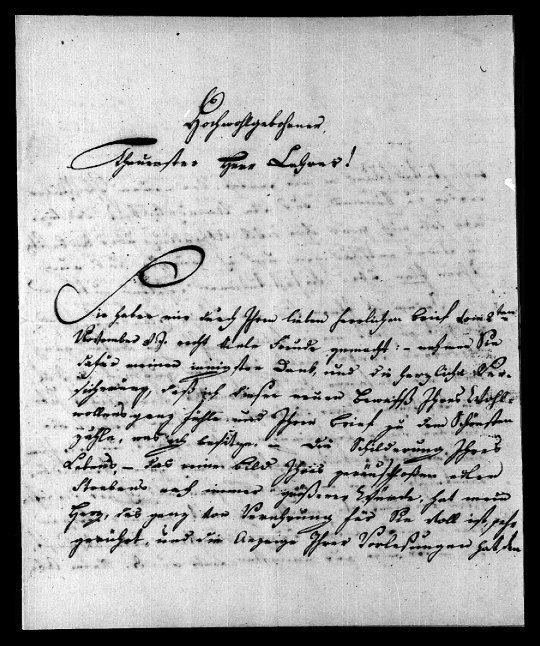 Hochwohlgebohrener,
Theuerster Herr Lehrer!
Sie haben mir durch Ihren lieben herrlichen Brief vom 8ten
November d. J. recht viele Freude gemacht: – nehmen Sie
dafür meinen innigsten Dank, und die herzliche Ver-
sicherung, daß ich diesen neuen Beweiß Ihres Wohl-
wollens ganz fühle und Ihren Brief zu dem Schönsten
zähle, was ich besitze. – Die Schilderung Ihres
Lebens, – das mir ein Bild Ihres großen edlen
Strebens noch immer größer wurde, hat mein
Herz, das ganz von Verehrung für Sie voll ist, sehr
gerührt, und die Anzeige Ihrer Vorlesungen hat den